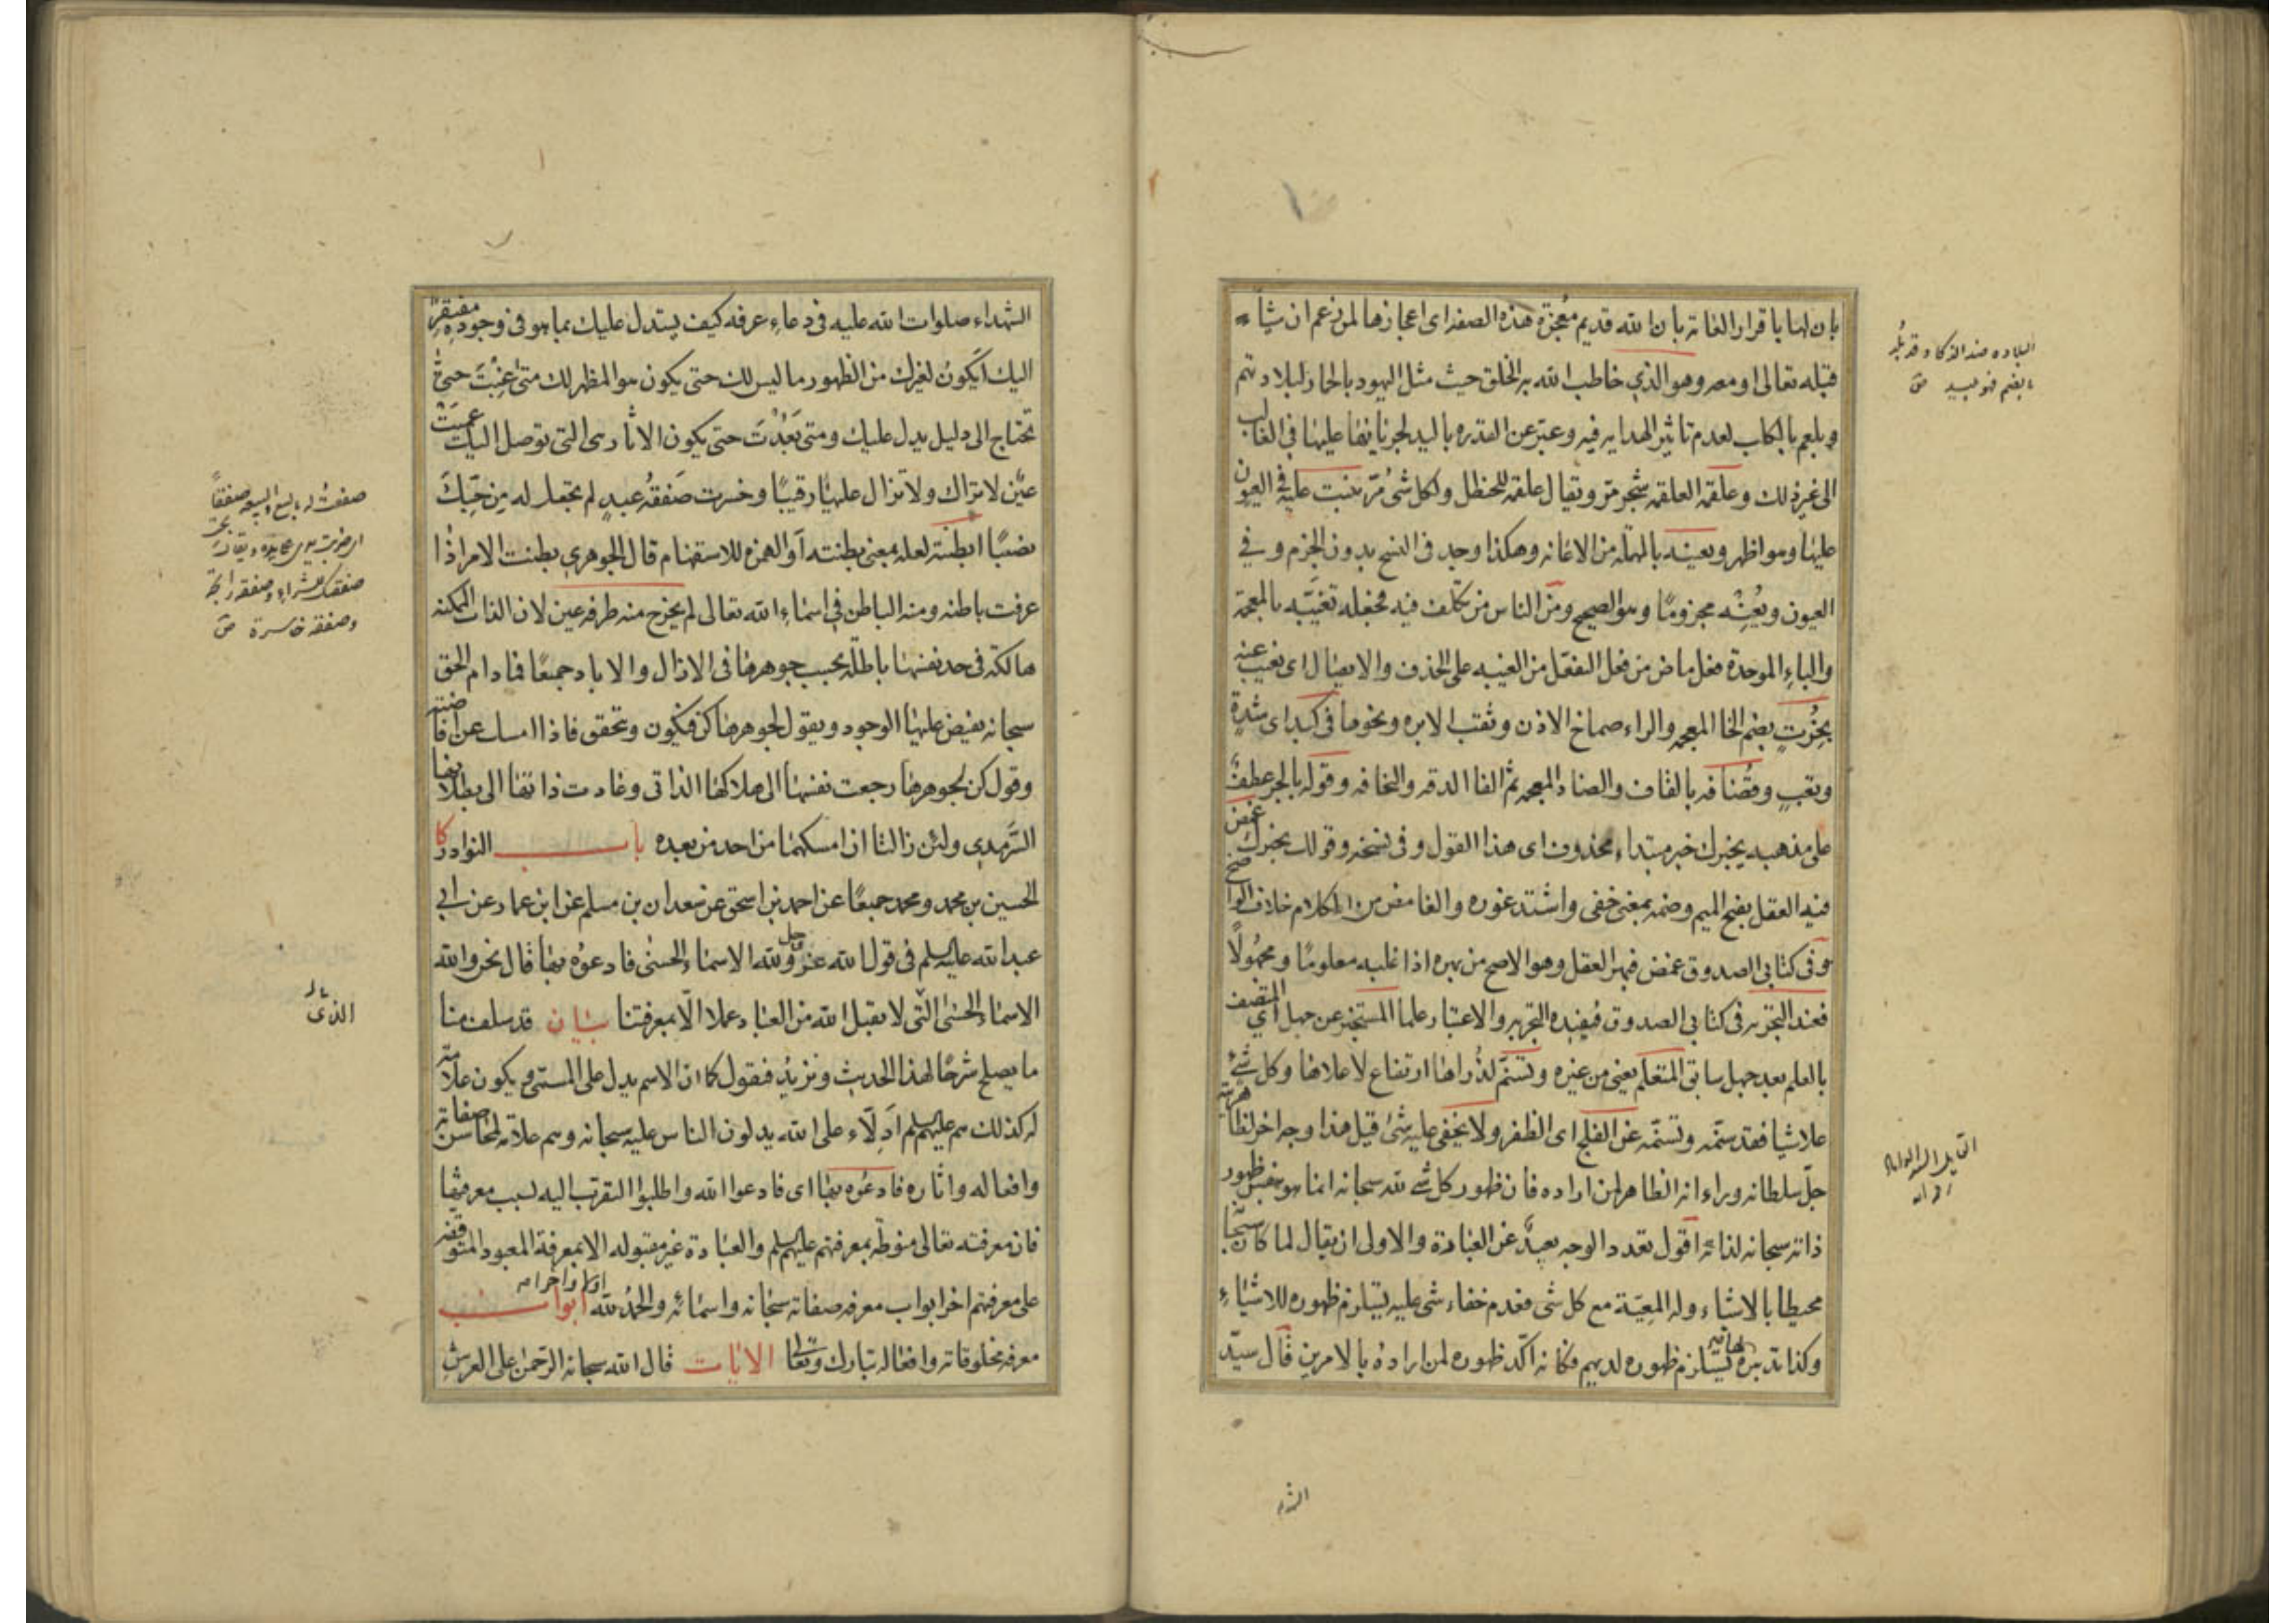 بان لها باقرار العامة بان الله قديم معجزة هذه الصفة اى اعجازها لمن زعم ان شيئا
قبله تعالى او معه وهو الذي خاطب الله به الخلق حيث مثل اليهود بالحمار لبلادتهم
وبلعم بالكلب لعدم تاثير الهداية فيه وعبر عن القدرة باليد لجريانها عليها فى الغالب
الى غير ذلك وعلقمة العلقمة شجر مر ويقال علقمة للحنظل ولكل شئ مر يثبت عليه فى العيون
عليها وهو اظهر ويعينه بالمهملة من الاعانة وهكذا وجد فى النسخ بدون الجزم وفي
العيون ويُعِنْه مجزوما وهو الصحيح ومن الناس من تكلف فيه فجعله تغيّبه بالمعجمة
والباء الموحدة فعل ماض من فعل التفعل من الغيبة على الحذف والايصال اى تغيب عنه
بخُرت بضم الخا المعجمة والراء صماخ الاذن وثقب الابرة ونحوها فى كبد اى شدة
وتعب وقضافة بالقاف والضاد المعجمة ثم الفا الدقة والنحافة وقوله بالجر عطف
على مذهبه يخبرك خبر مبتداء محذوف اى هذا القول وفى نسخة وقولك يخبرك غمض
فيه العقل بفتح الميم وضمه بمعنى خفى واشتد غوره والغامض من الكلام خلاف الواضح
وفى كتابى الصدوق غمض فبهر العقل وهو الاصح من بهره اذا غلبه معلوما ومجهولا
فعند التجربة فى كتابى الصدوق فيفيده التجربة والاعتبار علما المستخبر عن جهل اي المتصف
بالعلم بعد جهل سابق المتعلم يعنى من غيره وتسنّم لذُراها ارتفاع لاعلاها وكل شئ
علا شيا فقد سنّمه وتسنّمه عن الفلج اى الظفر ولا يخفى عليه شئ قيل هذا وجه اخر لظاهريته
جل سلطانه وراء انه الظاهر لمن اراده فان ظهور كل شئ لله سبحانه انما هو بنفس ظهور
ذاته سبحانه لذاته اقول تعدد الوجه بعيد عن العبارة والاولى ان يقال لما كان سبحانه
محيطا بالاشياء وله المعية مع كل شئ فعدم خفاء شئ عليه يستلزم ظهوره للاشياء
وكذا تدبيره لها فيه يستلزم ظهوره لديهم فكانه اكّد ظهوره لمن اراده بالامرين قال سيد
البلادة ضد الذكا وقد بلد
بالضم فهو بليد ص
الشهدا
الشهداء صلوات الله عليه فى دعاء عرفة كيف يستدل عليك بما هو فى وجوده مفتقر
اليك ايكون لغيرك من الظهور ما ليس لك حتى يكون هو المظهر لك متى غبت حتى
تحتاج الى دليل يدل عليك ومتى بَعُدْتَ حتى يكون الاثار هى التى توصل اليك عميت
عين لا تراك ولا تزال عليها رقيبا وخسرت صَفقةُ عبد لم تجعل له مِن حُبِّكَ
نصيبا ابطنته لعله بمعنى بطنته او الهمزة للاستفهام قال الجوهري بطنت الامر اذا
عرفت باطنه ومنه الباطن فى اسماء الله تعالى لم يخرج منه طرفة عين لان الذات الممكنة
هالكة فى حد نفسها باطلة بحسب جوهرها فى الازال والاباد جميعا فما دام الحق
سبحانه يفيض عليها الوجود ويقول لجوهرها كن فيكون وتحقق فاذا امسك عن افاضته
وقول كن لجوهرها رجعت نفسها الى هلاكها الذاتى وعادت ذاتها الى بطلانها
السَّرمدي ولئن زالتا ان امسكهما من احد من بعده باب النوادر كا
الحسين بن محمد ومحمد جميعا عن احمد بن اسحق عن سعدان بن مسلم عن ابن عمار عن ابي
عبد الله عليه السلم فى قول الله عز وجل ولله الاسماء الحسنى فادعوه بها قال نحن والله
الاسماء الحسنى التى لا يقبل الله من العباد عملا الا بمعرفتنا بيان قد سلف منا
ما يصلح شرحا لهذا الحديث ونزيد فنقول كما ان الاسم يدل على المسمى ويكون علامة
له كذلك هم عليهم السلم اَدِلاّء على الله يدلون الناس عليه سبحانه وهم علامة لمحاسن صفاته
وافعاله واثاره فادعوه بها اى فادعوا الله واطلبوا التقرب اليه بسبب معرفتها
فان معرفته تعالى منوطة بمعرفتهم عليهم السلم والعبادة غير مقبولة الا بمعرفة المعبود المتوقفة
على معرفتهم اخر ابواب معرفة صفاته سبحانه واسمائه والحمد لله اولا واخرا ابواب
معرفة مخلوقاته وافعاله تبارك وتعالى الايات قال الله سبحانه الرحمن على العرش
صفقت له بالبيع والبيعة صفقا
صفقة للشراء وصفقة رابحة
وصفقة خاسرة ص